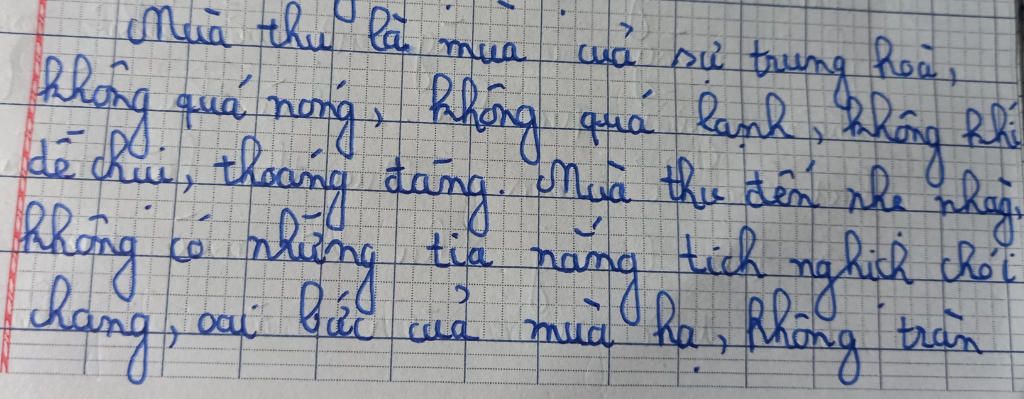 Mùa thu là mùa của sự trung hoà,
không quá nóng, không quá lạnh, không khí
dễ chịu, thoáng đãng. Mùa thu đến nhẹ nhàng,
không có những tia nắng tích nghịch chói
chang, oai bức của mùa hạ, không tràn